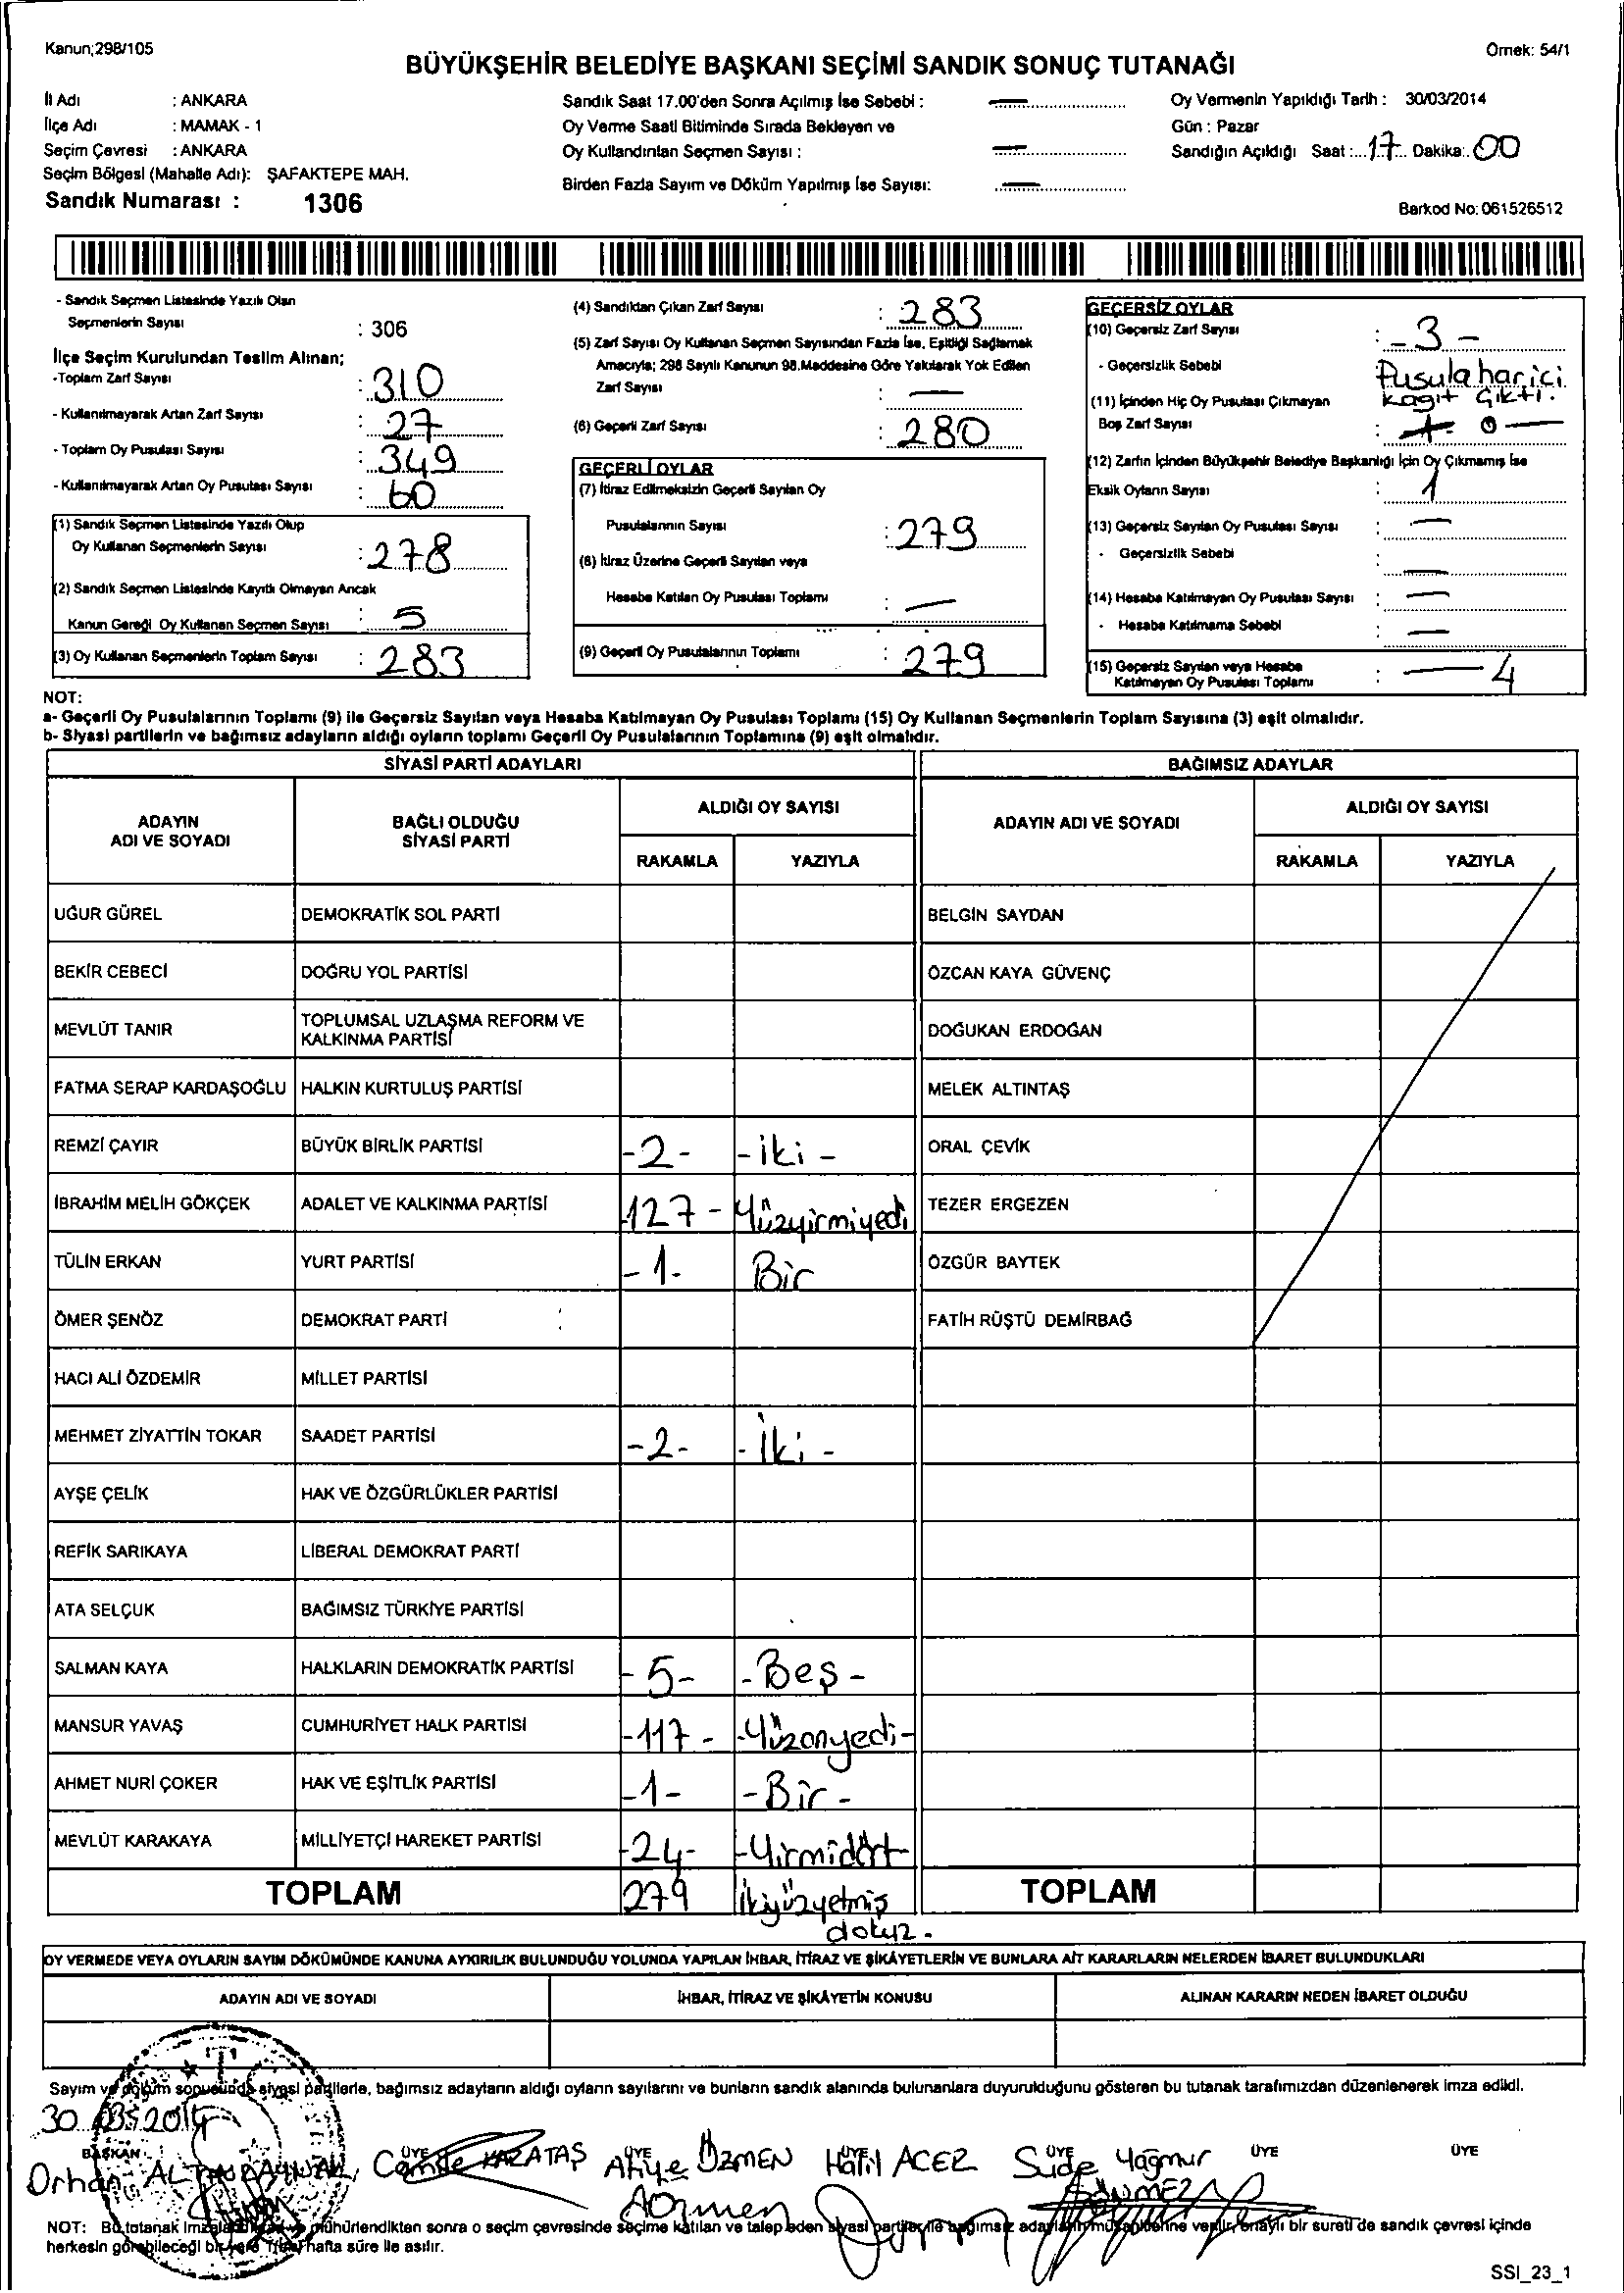 Kanun;298/105
Örnek: 54/1
BÜYÜKŞEHİR BELEDİYE BAŞKANI SEÇİMİ SANDIK SONUÇ TUTANAĞI
İl Adı : ANKARA
İlçe Adı : MAMAK - 1
Seçim Çevresi : ANKARA
Seçim Bölgesi (Mahalle Adı): ŞAFAKTEPE MAH.
Sandık Numarası : 1306
Sandık Saat 17.00'den Sonra Açılmış İse Sebebi : —
Oy Verme Saati Bitiminde Sırada Bekleyen ve
Oy Kullandırılan Seçmen Sayısı : —
Birden Fazla Sayım ve Döküm Yapılmış İse Sayısı: —
Oy Vermenin Yapıldığı Tarih : 30/03/2014
Gün : Pazar
Sandığın Açıldığı Saat : 17 Dakika: 00
Barkod No: 061526512
- Sandık Seçmen Listesinde Yazılı Olan
Seçmenlerin Sayısı : 306
İlçe Seçim Kurulundan Teslim Alınan;
-Toplam Zarf Sayısı : 310
- Kullanılmayarak Artan Zarf Sayısı : 27
- Toplam Oy Pusulası Sayısı : 349
- Kullanılmayarak Artan Oy Pusulası Sayısı : 60
(1) Sandık Seçmen Listesinde Yazılı Olup
Oy Kullanan Seçmenlerin Sayısı : 278
(2) Sandık Seçmen Listesinde Kayıtlı Olmayan Ancak
Kanun Gereği Oy Kullanan Seçmen Sayısı : 5
(3) Oy Kullanan Seçmenlerin Toplam Sayısı : 283
(4) Sandıktan Çıkan Zarf Sayısı : 283
(5) Zarf Sayısı Oy Kullanan Seçmen Sayısından Fazla İse, Eşitliği Sağlamak
Amacıyla; 298 Sayılı Kanunun 98.Maddesine Göre Yakılarak Yok Edilen
Zarf Sayısı : —
(6) Geçerli Zarf Sayısı : 280
GEÇERLİ OYLAR
(7) İtiraz Edilmeksizin Geçerli Sayılan Oy
Pusulalarının Sayısı : 279
(8) İtiraz Üzerine Geçerli Sayılan veya
Hesaba Katılan Oy Pusulası Toplamı : —
(9) Geçerli Oy Pusulalarının Toplamı : 279
GEÇERSİZ OYLAR
(10) Geçersiz Zarf Sayısı : - 3 -
- Geçersizlik Sebebi : Pusula harici
kağıt çıktı.
(11) İçinden Hiç Oy Pusulası Çıkmayan
Boş Zarf Sayısı : 0 —
(12) Zarfın İçinden Büyükşehir Belediye Başkanlığı İçin Oy Çıkmamış İse
Eksik Oyların Sayısı : 1
(13) Geçersiz Sayılan Oy Pusulası Sayısı : —
- Geçersizlik Sebebi : —
(14) Hesaba Katılmayan Oy Pusulası Sayısı : —
- Hesaba Katılmama Sebebi : —
(15) Geçersiz Sayılan veya Hesaba
Katılmayan Oy Pusulası Toplamı : — 4
NOT:
a- Geçerli Oy Pusulalarının Toplamı (9) ile Geçersiz Sayılan veya Hesaba Katılmayan Oy Pusulası Toplamı (15) Oy Kullanan Seçmenlerin Toplam Sayısına (3) eşit olmalıdır.
b- Siyasi partilerin ve bağımsız adayların aldığı oyların toplamı Geçerli Oy Pusulalarının Toplamına (9) eşit olmalıdır.
SİYASİ PARTİ ADAYLARI BAĞIMSIZ ADAYLAR
ADAYIN
ADI VE SOYADI
BAĞLI OLDUĞU
SİYASİ PARTİ
ALDIĞI OY SAYISI
RAKAMLA YAZIYLA
ADAYIN ADI VE SOYADI
ALDIĞI OY SAYISI
RAKAMLA YAZIYLA
UĞUR GÜREL DEMOKRATİK SOL PARTİ BELGİN SAYDAN
BEKİR CEBECİ DOĞRU YOL PARTİSİ ÖZCAN KAYA GÜVENÇ
MEVLÜT TANIR TOPLUMSAL UZLAŞMA REFORM VE
KALKINMA PARTİSİ DOĞUKAN ERDOĞAN
FATMA SERAP KARDAŞOĞLU HALKIN KURTULUŞ PARTİSİ MELEK ALTINTAŞ
REMZİ ÇAYIR BÜYÜK BİRLİK PARTİSİ -2- -iki- ORAL ÇEVİK
İBRAHİM MELİH GÖKÇEK ADALET VE KALKINMA PARTİSİ -127- Yüzyirmiyedi TEZER ERGEZEN
TÜLİN ERKAN YURT PARTİSİ -1- Bir ÖZGÜR BAYTEK
ÖMER ŞENÖZ DEMOKRAT PARTİ FATİH RÜŞTÜ DEMİRBAĞ
HACI ALİ ÖZDEMİR MİLLET PARTİSİ
MEHMET ZİYATTİN TOKAR SAADET PARTİSİ -2- -İki-
AYŞE ÇELİK HAK VE ÖZGÜRLÜKLER PARTİSİ
REFİK SARIKAYA LİBERAL DEMOKRAT PARTİ
ATA SELÇUK BAĞIMSIZ TÜRKİYE PARTİSİ
SALMAN KAYA HALKLARIN DEMOKRATİK PARTİSİ -5- -Beş-
MANSUR YAVAŞ CUMHURİYET HALK PARTİSİ -117- -Yüzonyedi-
AHMET NURİ ÇOKER HAK VE EŞİTLİK PARTİSİ -1- -Bir-
MEVLÜT KARAKAYA MİLLİYETÇİ HAREKET PARTİSİ -24- -Yirmidört-
TOPLAM 279 İkiyüzyetmiş
dokuz. TOPLAM
OY VERMEDE VEYA OYLARIN SAYIM DÖKÜMÜNDE KANUNA AYKIRILIK BULUNDUĞU YOLUNDA YAPILAN İHBAR, İTİRAZ VE ŞİKÂYETLERİN VE BUNLARA AİT KARARLARIN NELERDEN İBARET BULUNDUKLARI
ADAYIN ADI VE SOYADI İHBAR, İTİRAZ VE ŞİKÂYETİN KONUSU ALINAN KARARIN NEDEN İBARET OLDUĞU
Sayım ve döküm sonucunda siyasi partilerle, bağımsız adayların aldığı oyların sayılarını ve bunların sandık alanında bulunanlara duyurulduğunu gösteren bu tutanak tarafımızdan düzenlenerek imza edildi.
30.03.2014
BAŞKAN ÜYE ÜYE ÜYE ÜYE ÜYE ÜYE
Orhan KARATAŞ Atiye ÖZMEN Halil ACER Sude Yağmur
SÖNMEZ
AÖzmen
NOT: Bu tutanak mühürlendikten sonra o seçim çevresinde seçime katılan ve talep eden siyasi partiler ile bağımsız adayların müşahitlerine verilir, onaylı bir sureti de sandık çevresi içinde
herkesin görebileceği bir yere 1 hafta süre ile asılır.
SSI_23_1